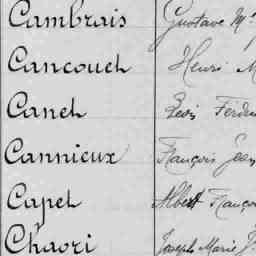 Cambrais Gustave M
Cancouet Henri M
Canet Léon Ferdin
Cannieux François Jean
Capet Albert Franço
Chaori Joseph Marie J